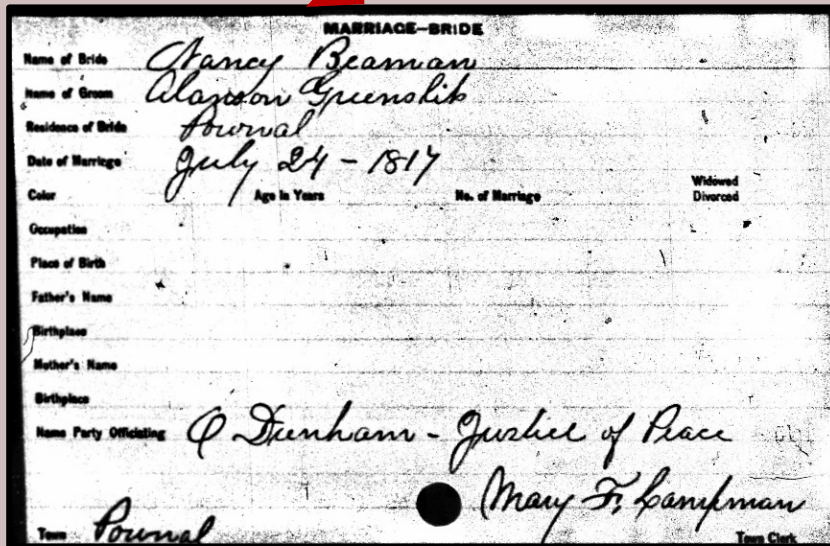 MARRIAGE—BRIDE
Name of Bride Nancy Beaman
Name of Groom Alanson Greenslit
Residence of Bride Pownal
Date of Marriage July 24 - 1817
Color Age in Years No. of Marriage Widowed Divorced
Occupation
Place of Birth
Father's Name
Birthplace
Mother's Name
Birthplace
Name Party Officiating O Dunham - Justice of Peace
Mary F. Lampman
Town Pownal Town Clerk